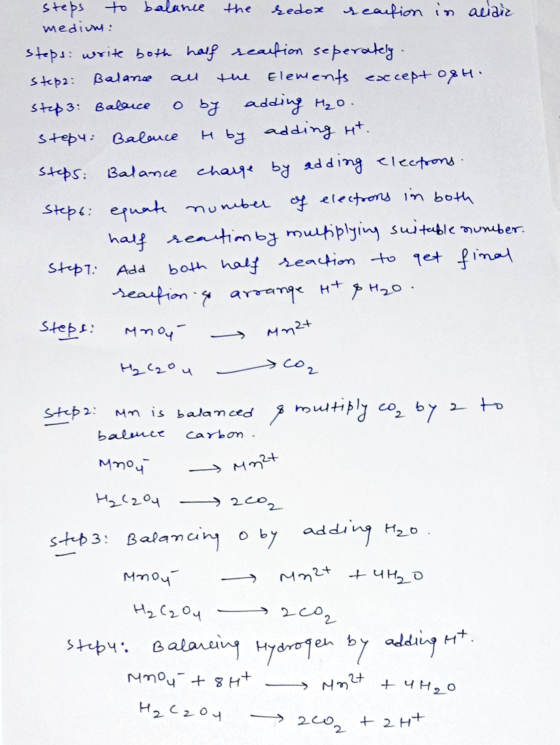 steps to balance the redox reaction in acidic
medium:
Step1: write both half reaction seperately.
Step2: Balance all the Elements except O & H.
Step3: Balance O by adding H₂O.
Step4: Balance H by adding H⁺.
Step5: Balance charge by adding electrons.
Step6: equate number of electrons in both
half reaction by multiplying suitable number.
Step7: Add both half reaction to get final
reaction & arrange H⁺ & H₂O.
Step1: MnO₄⁻ → Mn²⁺
H₂C₂O₄ → CO₂
Step2: Mn is balanced & multiply CO₂ by 2 to
balance carbon.
MnO₄⁻ → Mn²⁺
H₂C₂O₄ → 2CO₂
Step3: Balancing O by adding H₂O.
MnO₄⁻ → Mn²⁺ + 4H₂O
H₂C₂O₄ → 2CO₂
Step4: Balancing Hydrogen by adding H⁺.
MnO₄⁻ + 8H⁺ → Mn²⁺ + 4H₂O
H₂C₂O₄ → 2CO₂ + 2H⁺